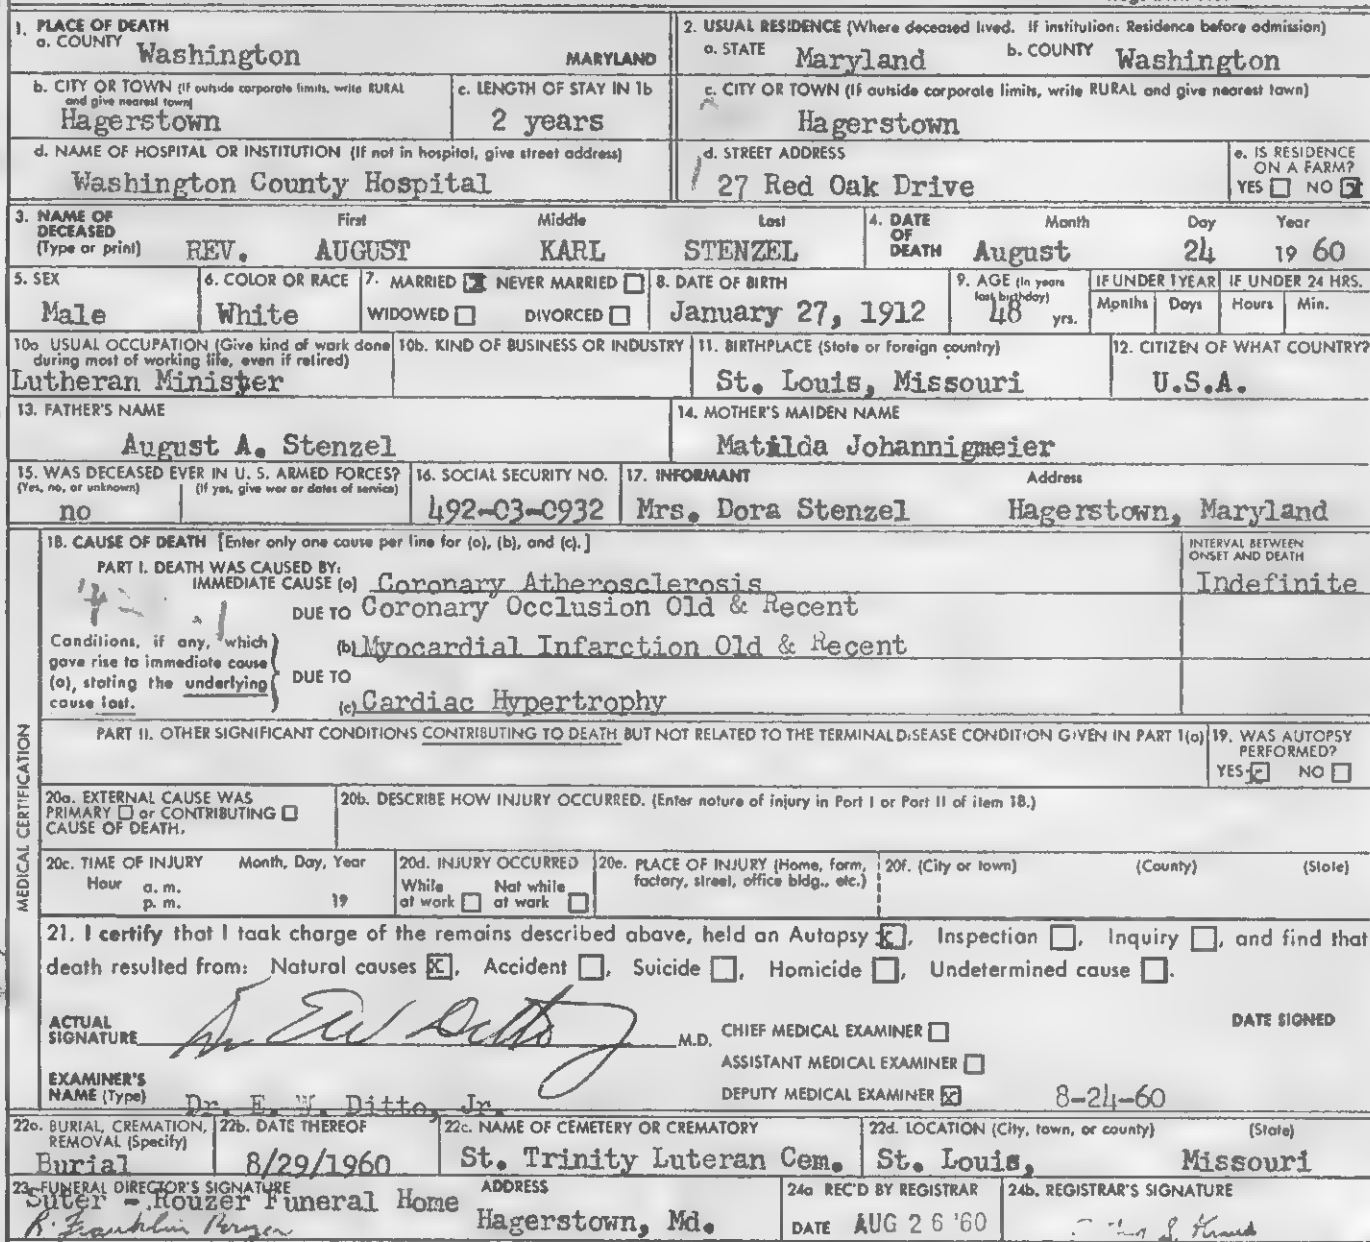 1. PLACE OF DEATH
a. COUNTY Washington MARYLAND
2. USUAL RESIDENCE (Where deceased lived. If institution: Residence before admission)
a. STATE Maryland b. COUNTY Washington
b. CITY OR TOWN (If outside corporate limits, write RURAL and give nearest town)
Hagerstown
c. LENGTH OF STAY IN 1b
2 years
c. CITY OR TOWN (If outside corporate limits, write RURAL and give nearest town)
Hagerstown
d. NAME OF HOSPITAL OR INSTITUTION (If not in hospital, give street address)
Washington County Hospital
d. STREET ADDRESS
27 Red Oak Drive
e. IS RESIDENCE ON A FARM?
YES NO X
3. NAME OF DECEASED (Type or print) First Middle Last
REV. AUGUST KARL STENZEL
4. DATE OF DEATH Month Day Year
August 24 19 60
5. SEX
Male
6. COLOR OR RACE
White
7. MARRIED X NEVER MARRIED
WIDOWED DIVORCED
8. DATE OF BIRTH
January 27, 1912
9. AGE (In years last birthday)
48 yrs.
IF UNDER 1 YEAR
Months Days
IF UNDER 24 HRS.
Hours Min.
10a USUAL OCCUPATION (Give kind of work done during most of working life, even if retired)
Lutheran Minister
10b. KIND OF BUSINESS OR INDUSTRY
11. BIRTHPLACE (State or foreign country)
St. Louis, Missouri
12. CITIZEN OF WHAT COUNTRY?
U.S.A.
13. FATHER'S NAME
August A. Stenzel
14. MOTHER'S MAIDEN NAME
Matilda Johannigmeier
15. WAS DECEASED EVER IN U. S. ARMED FORCES?
(Yes, no, or unknown) (If yes, give war or dates of service)
no
16. SOCIAL SECURITY NO.
492-03-0932
17. INFORMANT Address
Mrs. Dora Stenzel Hagerstown, Maryland
MEDICAL CERTIFICATION
18. CAUSE OF DEATH [Enter only one cause per line for (a), (b), and (c).]
INTERVAL BETWEEN ONSET AND DEATH
PART I. DEATH WAS CAUSED BY:
IMMEDIATE CAUSE (a) Coronary Atherosclerosis Indefinite
DUE TO Coronary Occlusion Old & Recent
Conditions, if any, which gave rise to immediate cause (a), stating the underlying cause last.
(b) Myocardial Infarction Old & Recent
DUE TO
(c) Cardiac Hypertrophy
PART II. OTHER SIGNIFICANT CONDITIONS CONTRIBUTING TO DEATH BUT NOT RELATED TO THE TERMINAL DISEASE CONDITION GIVEN IN PART I(a)
19. WAS AUTOPSY PERFORMED?
YES X NO
20a. EXTERNAL CAUSE WAS
PRIMARY or CONTRIBUTING
CAUSE OF DEATH.
20b. DESCRIBE HOW INJURY OCCURRED. (Enter nature of injury in Part I or Part II of item 18.)
20c. TIME OF INJURY Month, Day, Year
Hour a. m.
p. m. 19
20d. INJURY OCCURRED
While at work Not while at work
20e. PLACE OF INJURY (Home, farm, factory, street, office bldg., etc.)
20f. (City or town) (County) (State)
21. I certify that I took charge of the remains described above, held an Autopsy X, Inspection , Inquiry , and find that
death resulted from: Natural causes X, Accident , Suicide , Homicide , Undetermined cause .
ACTUAL SIGNATURE Dr EW Ditto Jr M.D.
CHIEF MEDICAL EXAMINER
ASSISTANT MEDICAL EXAMINER
DEPUTY MEDICAL EXAMINER X
DATE SIGNED
8-24-60
EXAMINER'S NAME (Type) Dr. E. W. Ditto, Jr.
22a. BURIAL, CREMATION, REMOVAL (Specify)
Burial
22b. DATE THEREOF
8/29/1960
22c. NAME OF CEMETERY OR CREMATORY
St. Trinity Luteran Cem.
22d. LOCATION (City, town, or county) (State)
St. Louis, Missouri
23. FUNERAL DIRECTOR'S SIGNATURE ADDRESS
Suter - Rouzer Funeral Home
R. Franklin Rouzer
Hagerstown, Md.
24a REC'D BY REGISTRAR
DATE AUG 26 '60
24b. REGISTRAR'S SIGNATURE